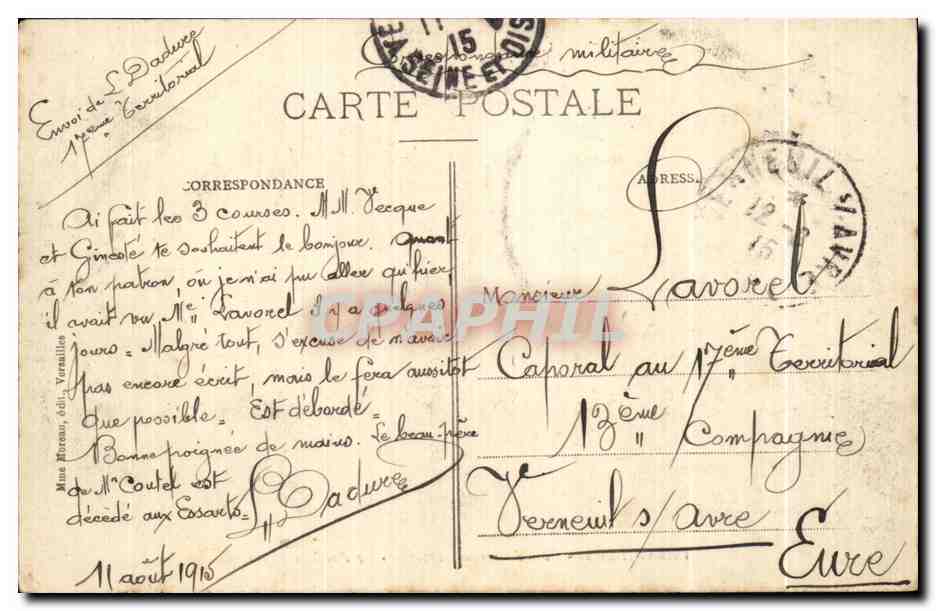 Envoi de L. Dadure
17ème Territorial
11
15
SEINE ET OISE
Correspondance militaire
CARTE POSTALE
CORRESPONDANCE
Ai fait les 3 courses. M.M. Vecque
et Gincoté te souhaitent le bonjour. Quant
à ton patron, où je n'ai pu aller qu'hier,
il avait vu Me Lavorel il y a quelques
jours = Malgré tout, s'excuse de n'avoir
pas encore écrit, mais le fera aussitôt
que possible = Est débordé =
Bonne poignée de mains. Le beau-père
de Mr Coutel est
décédé aux Essarts =
L. Dadure
11 août 1915
Mme Moreau, édit., Versailles
ADRESSE
VERNEUIL S/ AVRE
12
15
Monsieur Lavorel
Caporal au 17ème Territorial
13ème Compagnie
Verneuil s/ Avre
Eure
CPAPHIL